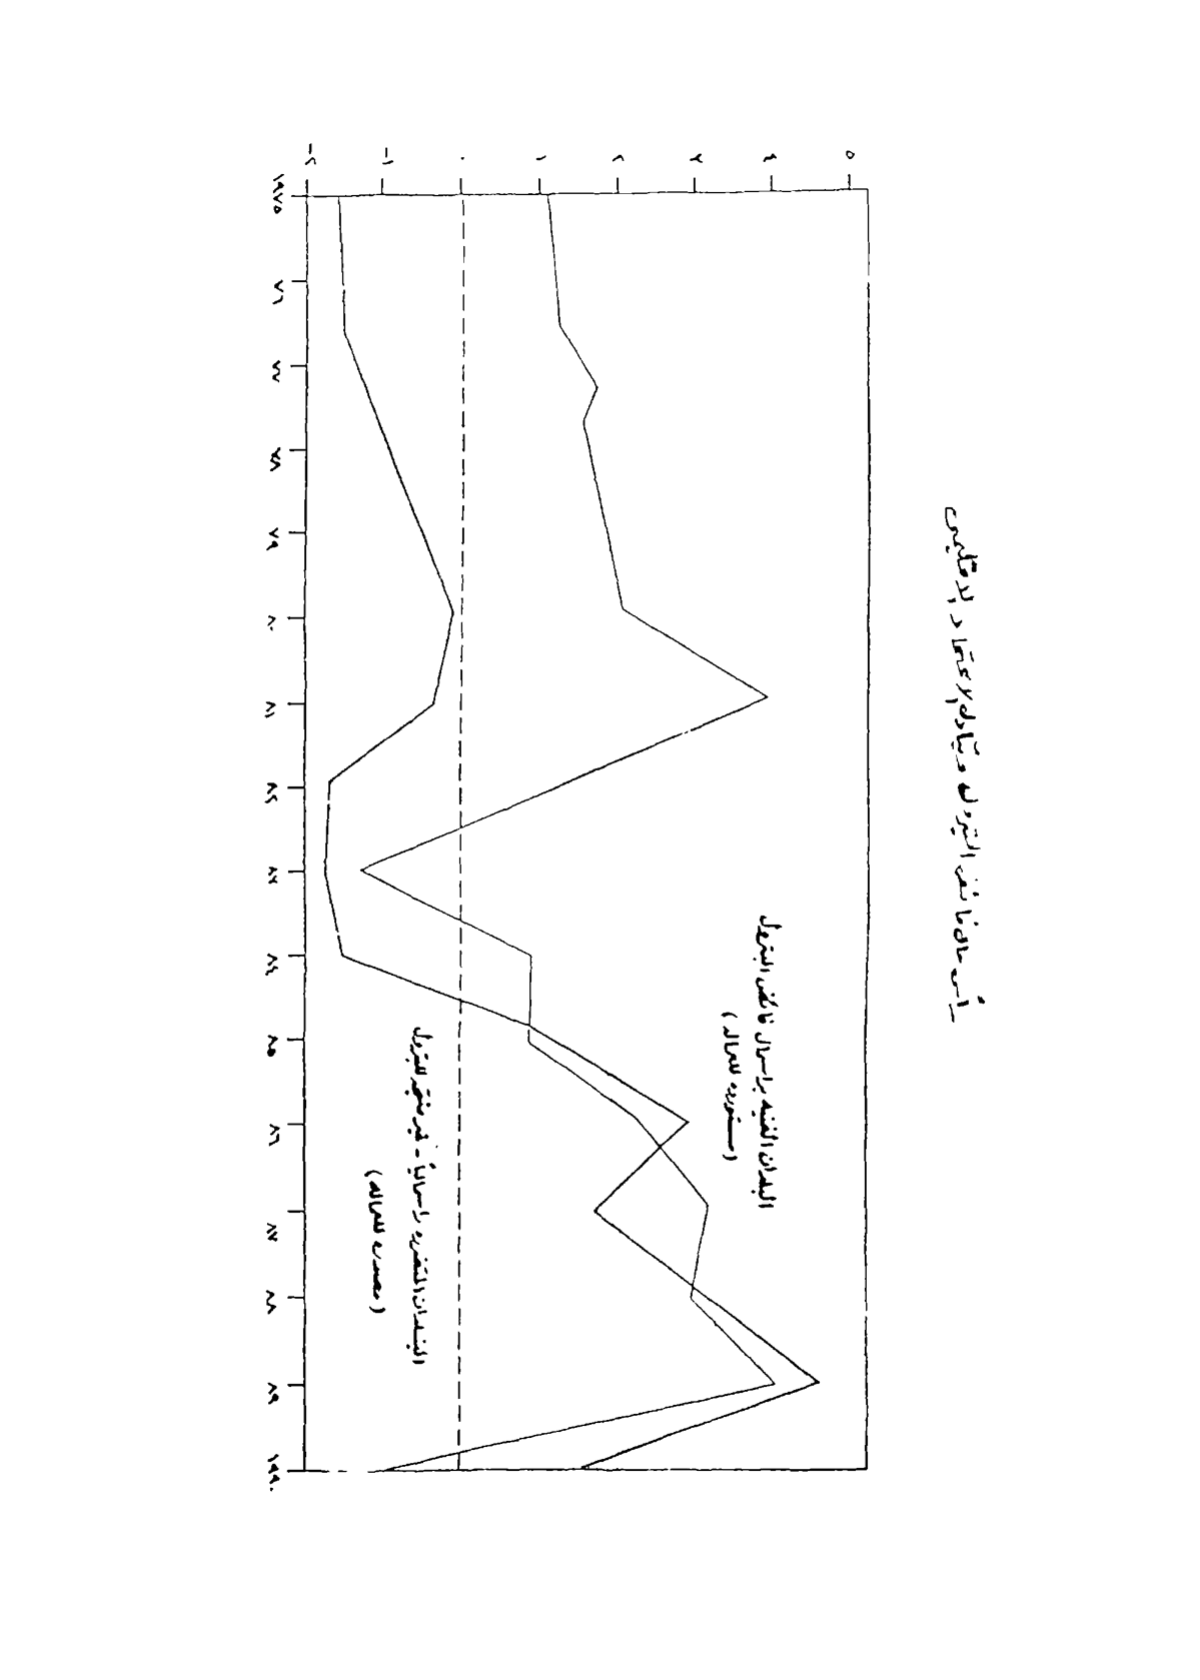 رأس مال فائض البترول وتبادل الاعتماد الاقليمى
٥
٤
٣
٢
١
٠
-١
-٢
البلدان الغنيه براسمال فائض البترول
(مستورده للعماله)
البلدان المتضرره راسمالياً - غير منتجه للبترول
(مصدره للعماله)
١٩٧٥ ٧٦ ٧٧ ٧٨ ٧٩ ٨٠ ٨١ ٨٢ ٨٣ ٨٤ ٨٥ ٨٦ ٨٧ ٨٨ ٨٩ ١٩٩٠